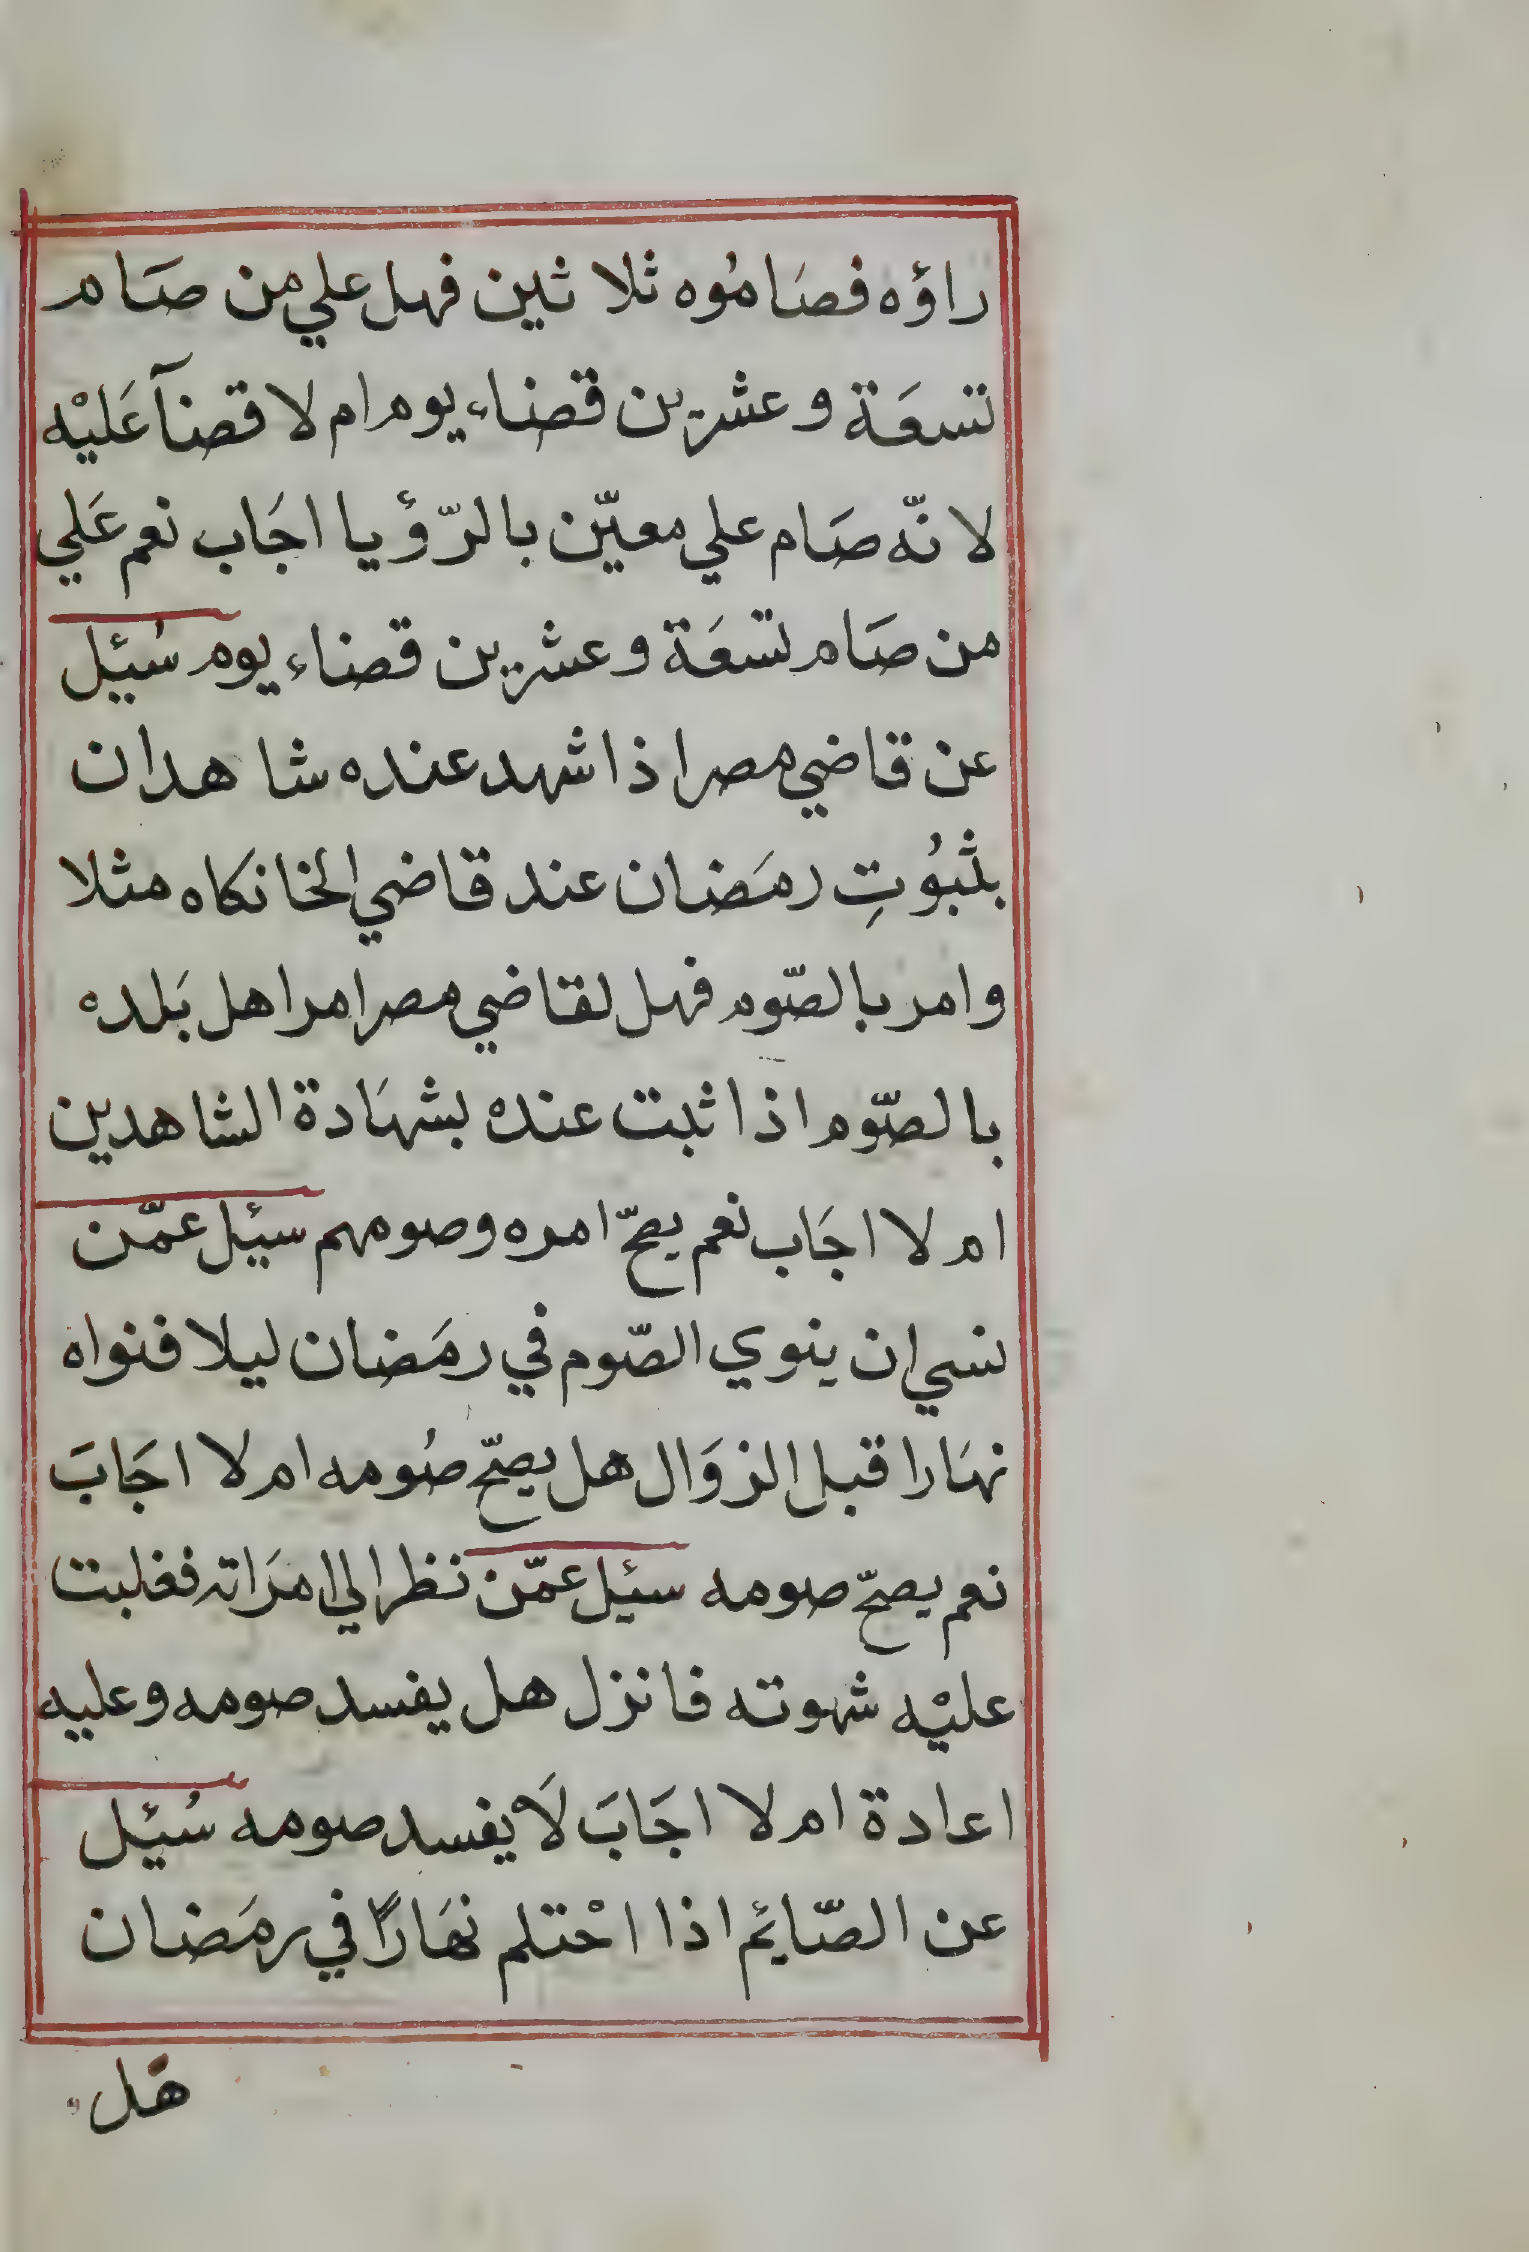 راؤه فصَامُوه ثلاثين فهل علي من صَام
تسعَة وعشرين قضاء يوم ام لا قضآ عَليْه
لانّه صَام علي معيّن بالرّؤيا اجَاب نعم عَلي
من صَام تسعَة وعشرين قضاء يوم سُئِل
عن قاضي مصر اذا شهد عنده شاهدان
بثبُوتِ رمَضان عند قاضي الخانكاه مثلا
وامر بالصّوم فهل لقاضي مصر امر اهل بَلده
بالصّوم اذا ثبت عنده بشهَادة الشاهدين
ام لا اجَاب نعم يصحّ امره وصومهم سئِل عمّن
نسي ان ينوي الصّوم في رمَضان ليلا فنواه
نهَارا قبل الزوَال هل يصحّ صُومه ام لا اجَابَ
نعم يصحّ صومه سئِل عمّن نظر الي امرَاته فغلبت
عليْه شهوته فانزل هل يفسد صومه وعليه
اعادة ام لا اجَابَ لَا يفسد صومه سُئِل
عن الصّائِم اذا احْتلم نهَارًا في رمَضان
هَل